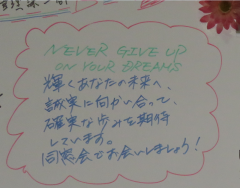 NEVER GIVE UP
ON YOUR DREAMS
輝くあなたの未来へ、
誠実に向かい合って、
確実な歩みを期待
しています。
同窓会でお会いしましょう！